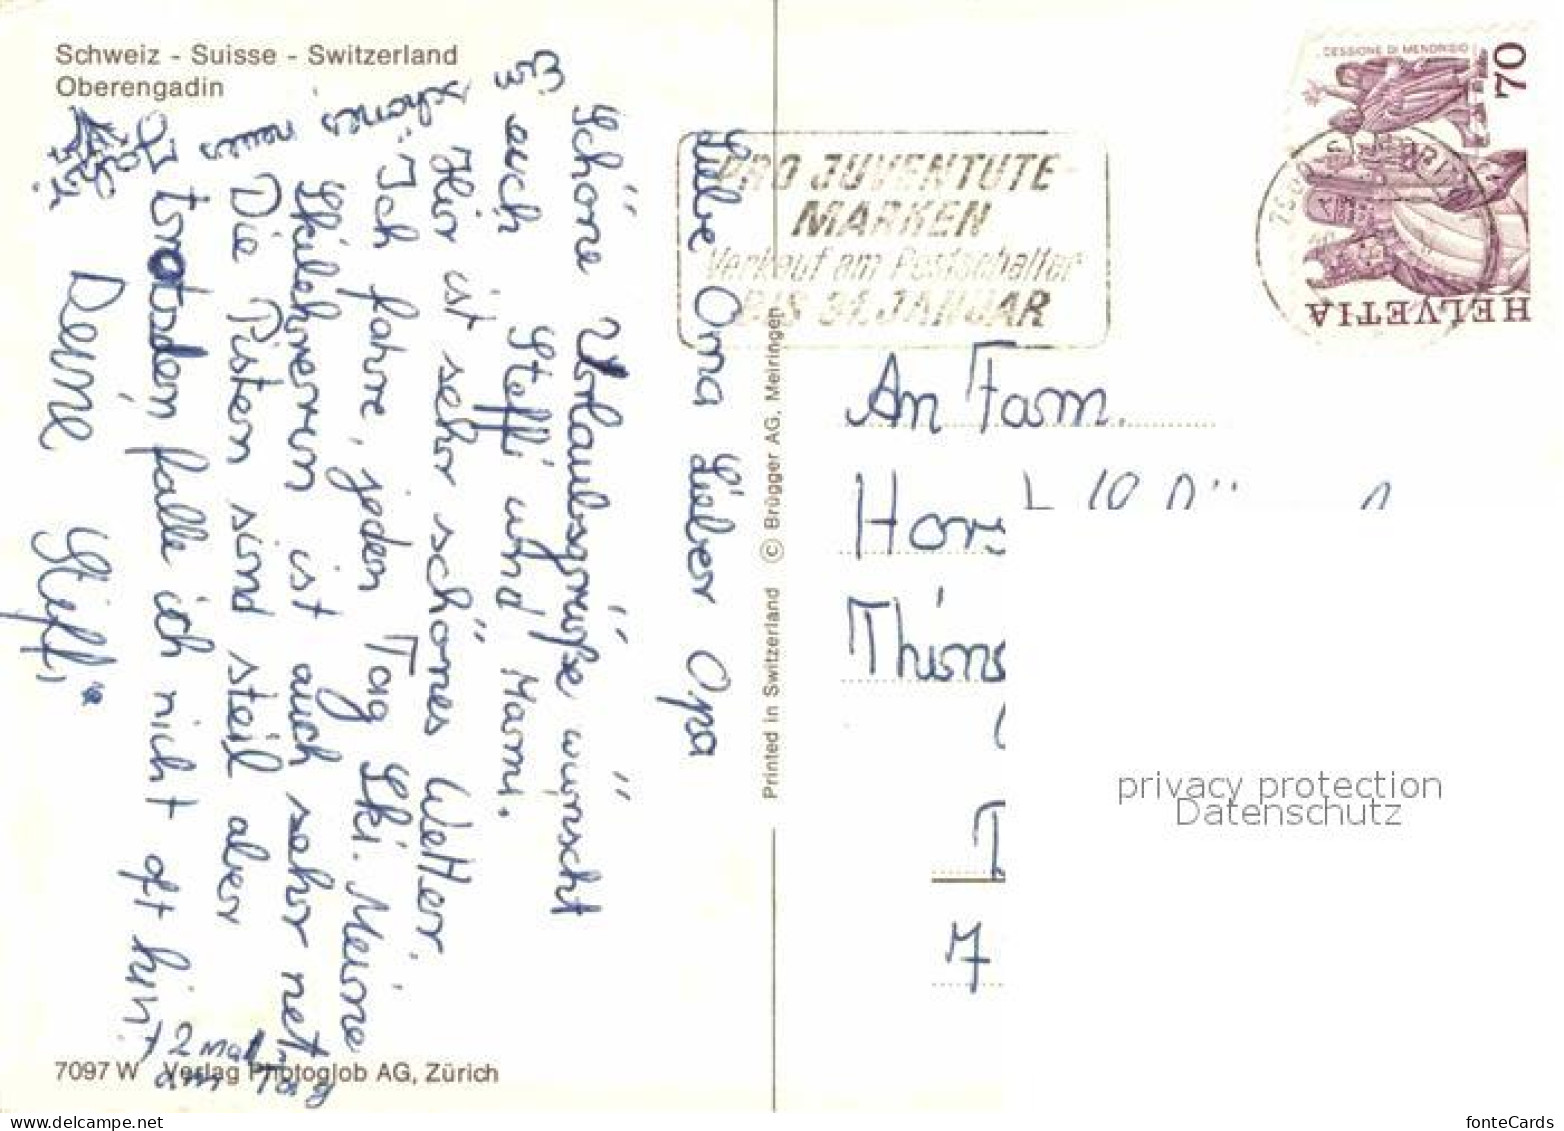 Schweiz - Suisse - Switzerland
Oberengadin
Liebe Oma Lieber Opa
Schöne Urlaubsgrüße wünscht
euch Steffi und Mami.
Hir ist sehr schönes Wetter.
Ich fahre, jeden Tag Ski. Meine
Skilehrerin ist auch sehr net.
Die Pisten sind steil aber
trotsdem falle ich nicht oft hin!
2 mal
am Tag
Deine Steffi
Ein
schönes neues
Printed in Switzerland © Brügger AG, Meiringen
7097 W Verlag Photoglob AG, Zürich
PRO JUVENTUTE-
MARKEN
Verkauf am Postschalter
BIS 31. JANUAR
CESSIONE DI MENDRISIO
70
HELVETIA
An Fam.
Hors
Thüns
7
privacy protection
Datenschutz
www.delcampe.net
fonteCards